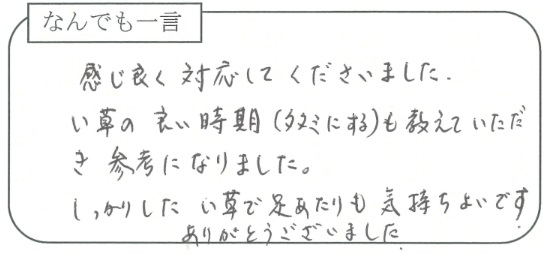 なんでも一言
感じ良く対応してくださいました.
い草の良い時期(タタミにする)も教えていただ
き参考になりました。
しっかりした い草で足あたりも気持ちよいです
ありがとうございました.